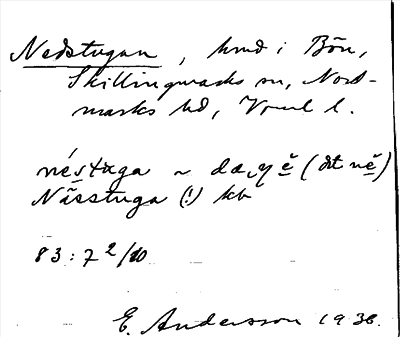 Nedstugan, hmd i Bön,
Skillingmarks sn, Nord-
marks hd, Vrml l.
néstuga ~ da, (åt nĕ)
Nässtuga (!) kb
83:7 2/10
E. Andersson 1938.